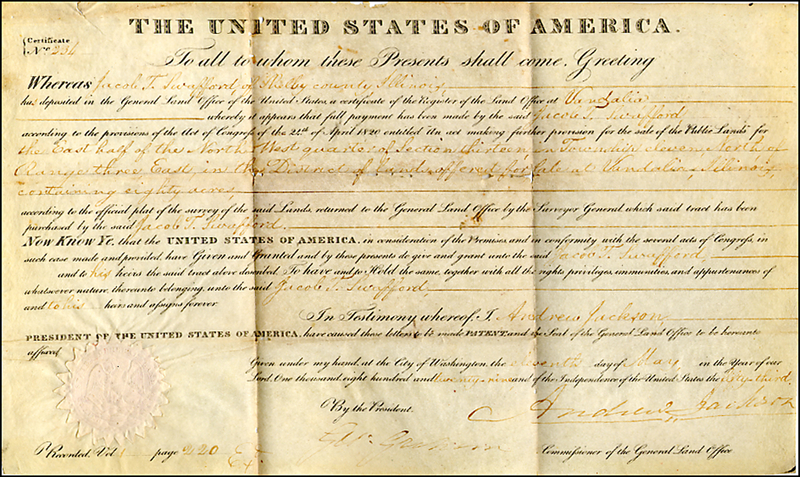 THE UNITED STATES OF AMERICA.
Certificate
No. 236
To all to whom these Presents shall come, Greeting
Whereas Jacob T. Swafford, of Shelby county, Illinois,
has deposited in the General Land Office of the United States, a certificate of the Register of the Land Office at Vandalia
whereby it appears that full payment has been made by the said Jacob T. Swafford
according to the provisions of the Act of Congress of the 24th of April 1820 entitled "An act making further provision for the sale of the Public Lands" for
the East half of the North West quarter of Section thirteen, in Township eleven North of
Range three East, in the District of Lands offered for Sale at Vandalia, Illinois,
containing eighty acres
according to the official plat of the survey of the said Lands, returned to the General Land Office by the Surveyor General, which said tract has been
purchased by the said Jacob T. Swafford.
Now Know Ye, that the UNITED STATES OF AMERICA, in consideration of the Premises, and in conformity with the several acts of Congress, in
such case made and provided, have Given and Granted and by these presents do give and grant unto the said Jacob T. Swafford,
and to his heirs the said tract above described. To have and to Hold the same, together with all the rights, privileges, immunities, and appurtenances of
whatsoever nature, thereunto belonging, unto the said Jacob T. Swafford
and to his heirs and assigns forever
In Testimony whereof, I, Andrew Jackson
PRESIDENT OF THE UNITED STATES OF AMERICA, have caused these letters to be made PATENT, and the Seal of the General Land Office to be hereunto
affixed
Given under my hand, at the City of Washington, the eleventh day of May, in the Year of our
Lord, One thousand, eight hundred and twenty-nine and of the Independence of the United States the fifty third.
By the President.
Andrew Jackson
Commissioner of the General Land Office
Recorded, Vol page 220 Ex'd.